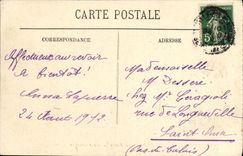 CARTE POSTALE
CORRESPONDANCE
ADRESSE
Affectueux au revoir
A bientôt!
Anna
24 Août 1912
Mademoiselle
M Dessere
chez Mr
rue de Longueville
Saint Omer
(Pas-de-Calais)
5